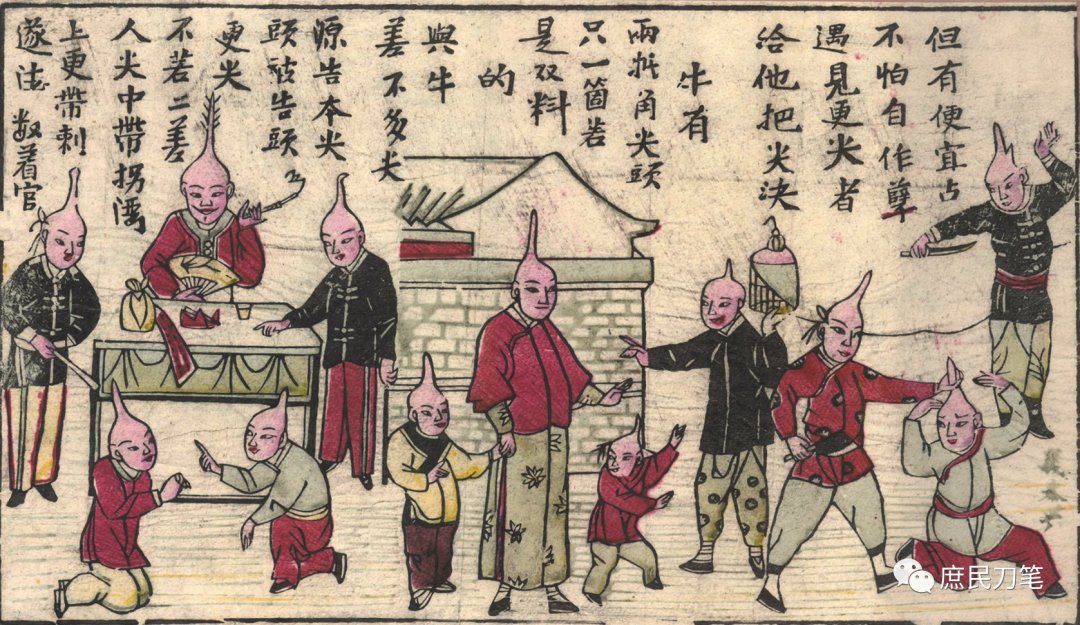 但有便宜占
不怕自作孽
遇見更尖者
給他把尖决
牛有
兩角尖頭
只一箇若
是双料
的
與牛
差不多尖
源告本尖
頭被告頭
更尖
不若二差
人尖中帶拐灣
上更帶刺
着官
庶民刀笔